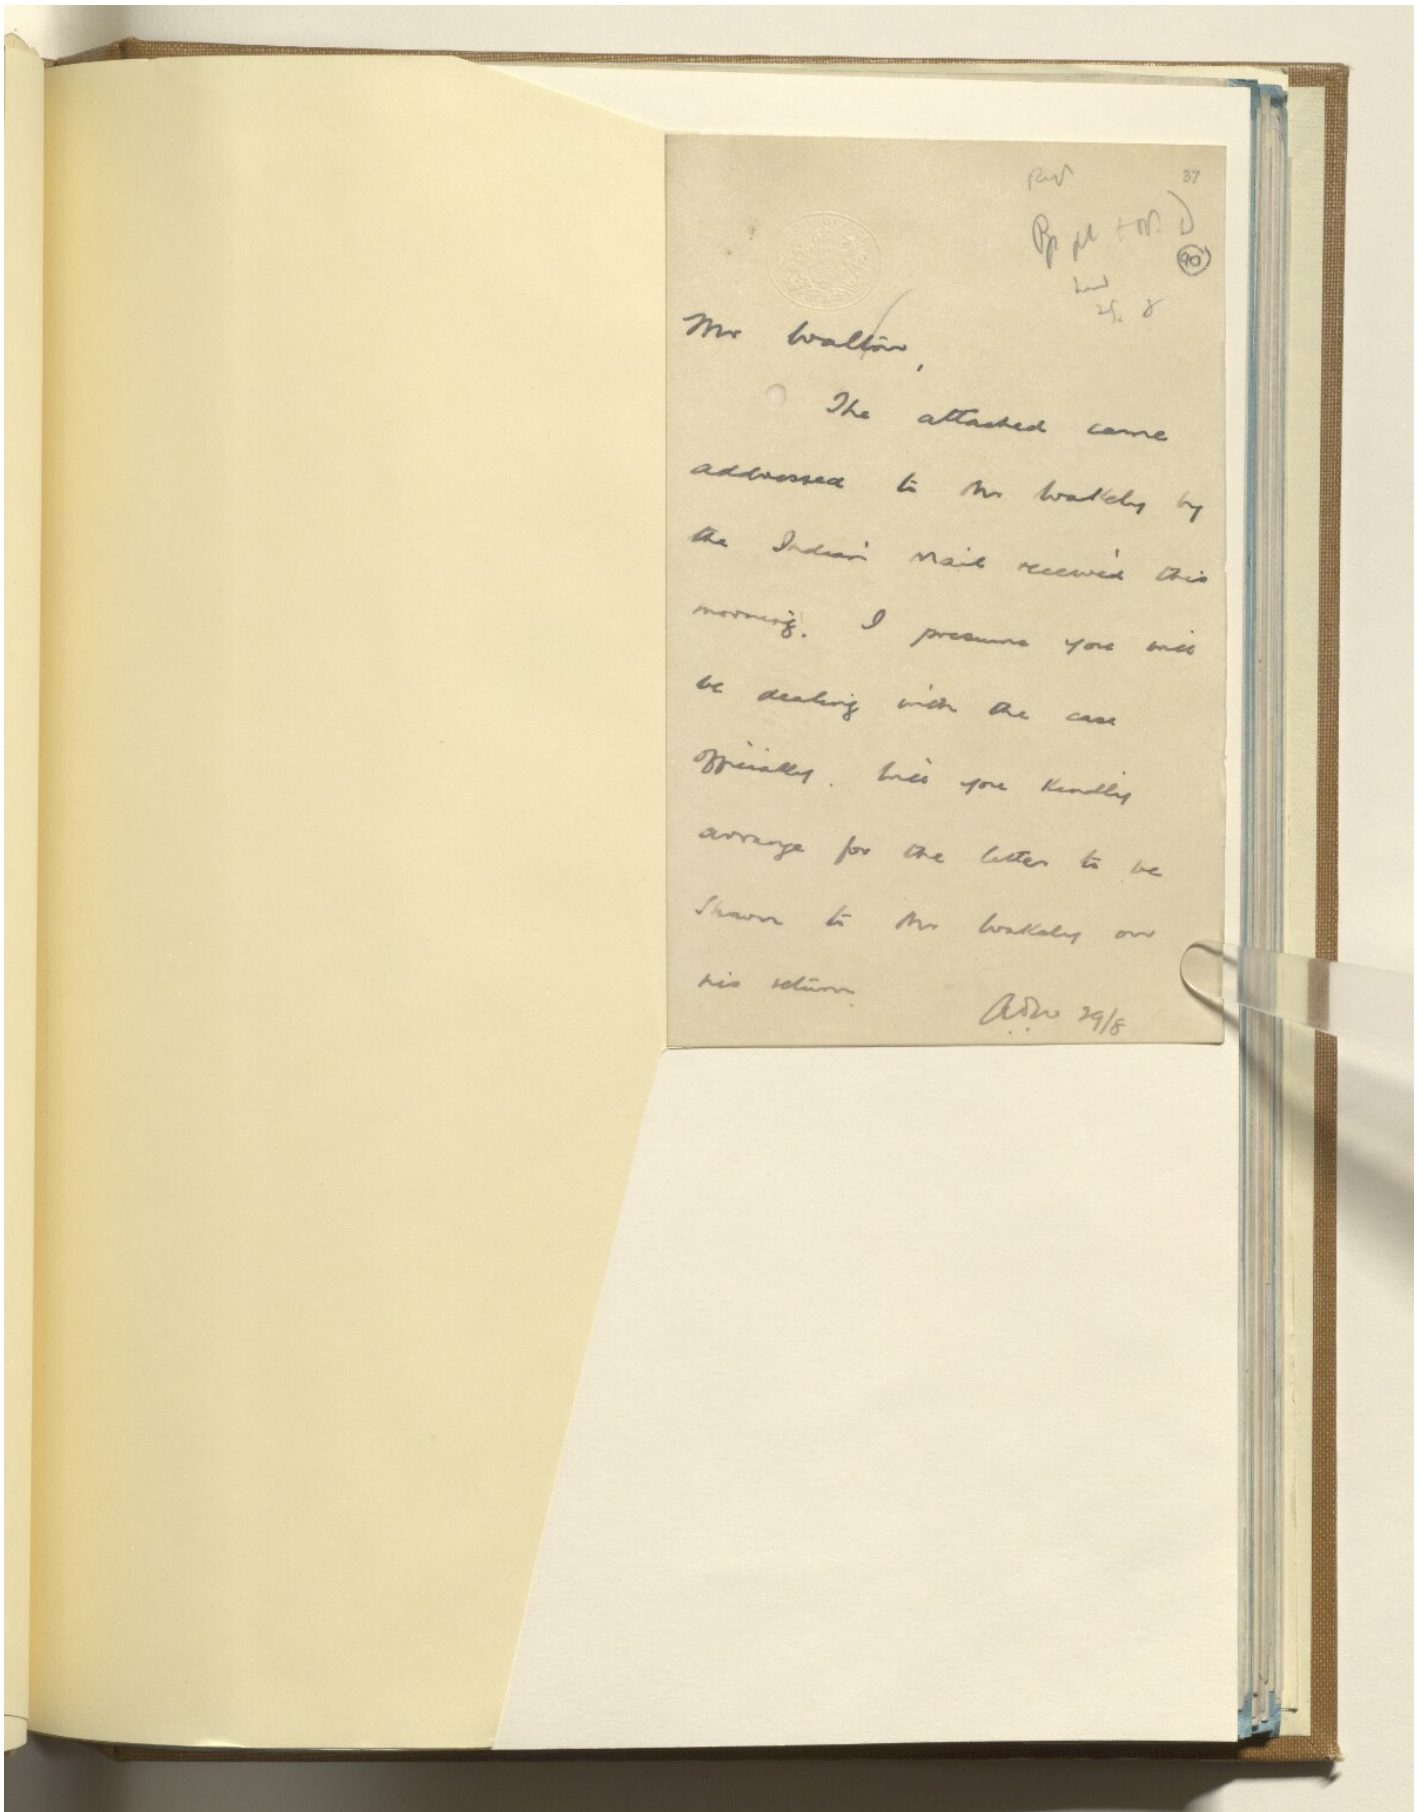 37
90
Mr Walton,
The attached came
addressed to Mr Wakely by
the Indian Mail received this
morning. I presume you will
be dealing with the case
officially. Will you kindly
arrange for the letter to be
shown to Mr Wakely on
his return.
29/8